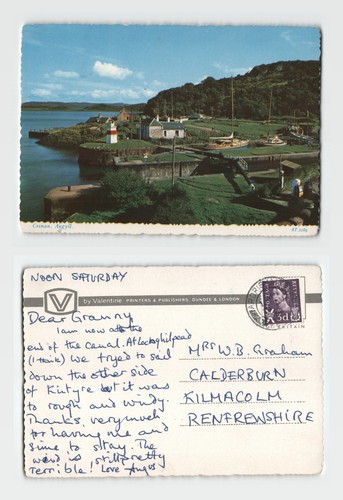 Crinan, Argyll.
NOON SATURDAY
V
by Valentine PRINTERS & PUBLISHERS, DUNDEE & LONDON
Dear Granny
I am now at the
end of the Canal. At Lochgilphead
(I think) We tryed to sail
down the other side
of Kintyre but it was
to rough and windy.
Thanks very much
for having me and
Sime to stay. The
is still pretty
Terrible! Love Angus
3d
MRS W.B. Graham
CALDERBURN
KILMACOLM
RENFREWSHIRE